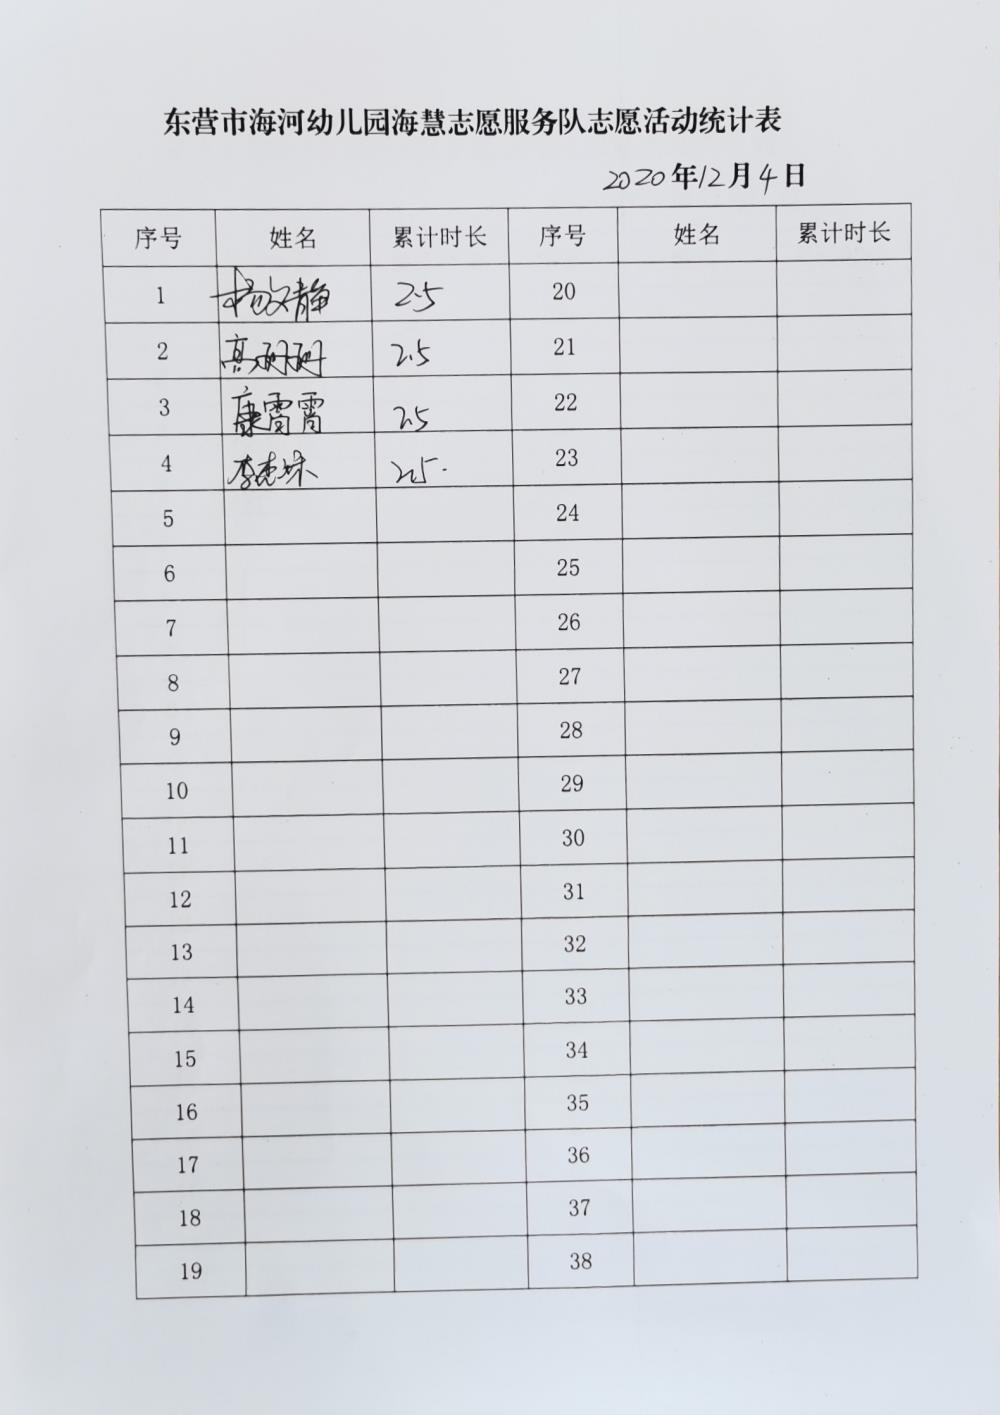 东营市海河幼儿园海慧志愿服务队志愿活动统计表
2020年12月4日
序号 姓名 累计时长 序号 姓名 累计时长
1 杨文静 2.5 20
2 高珊珊 2.5 21
3 康霄霄 2.5 22
4 李 2.5 23
5 24
6 25
7 26
8 27
9 28
10 29
11 30
12 31
13 32
14 33
15 34
16 35
17 36
18 37
19 38